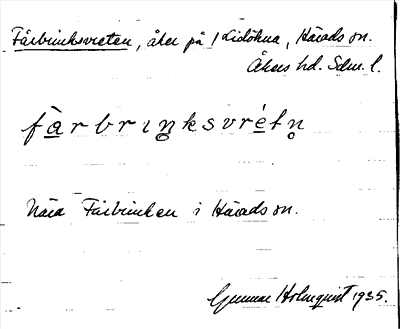 Fårbrinksvreten, åker på 1 Lidökna, Härads sn.
Åkers hd. Sdm. l.
fàrbrıŋksvrétn̥
Nära Fårbrinken i Härads sn.
Gunnar Holmquist 1935.